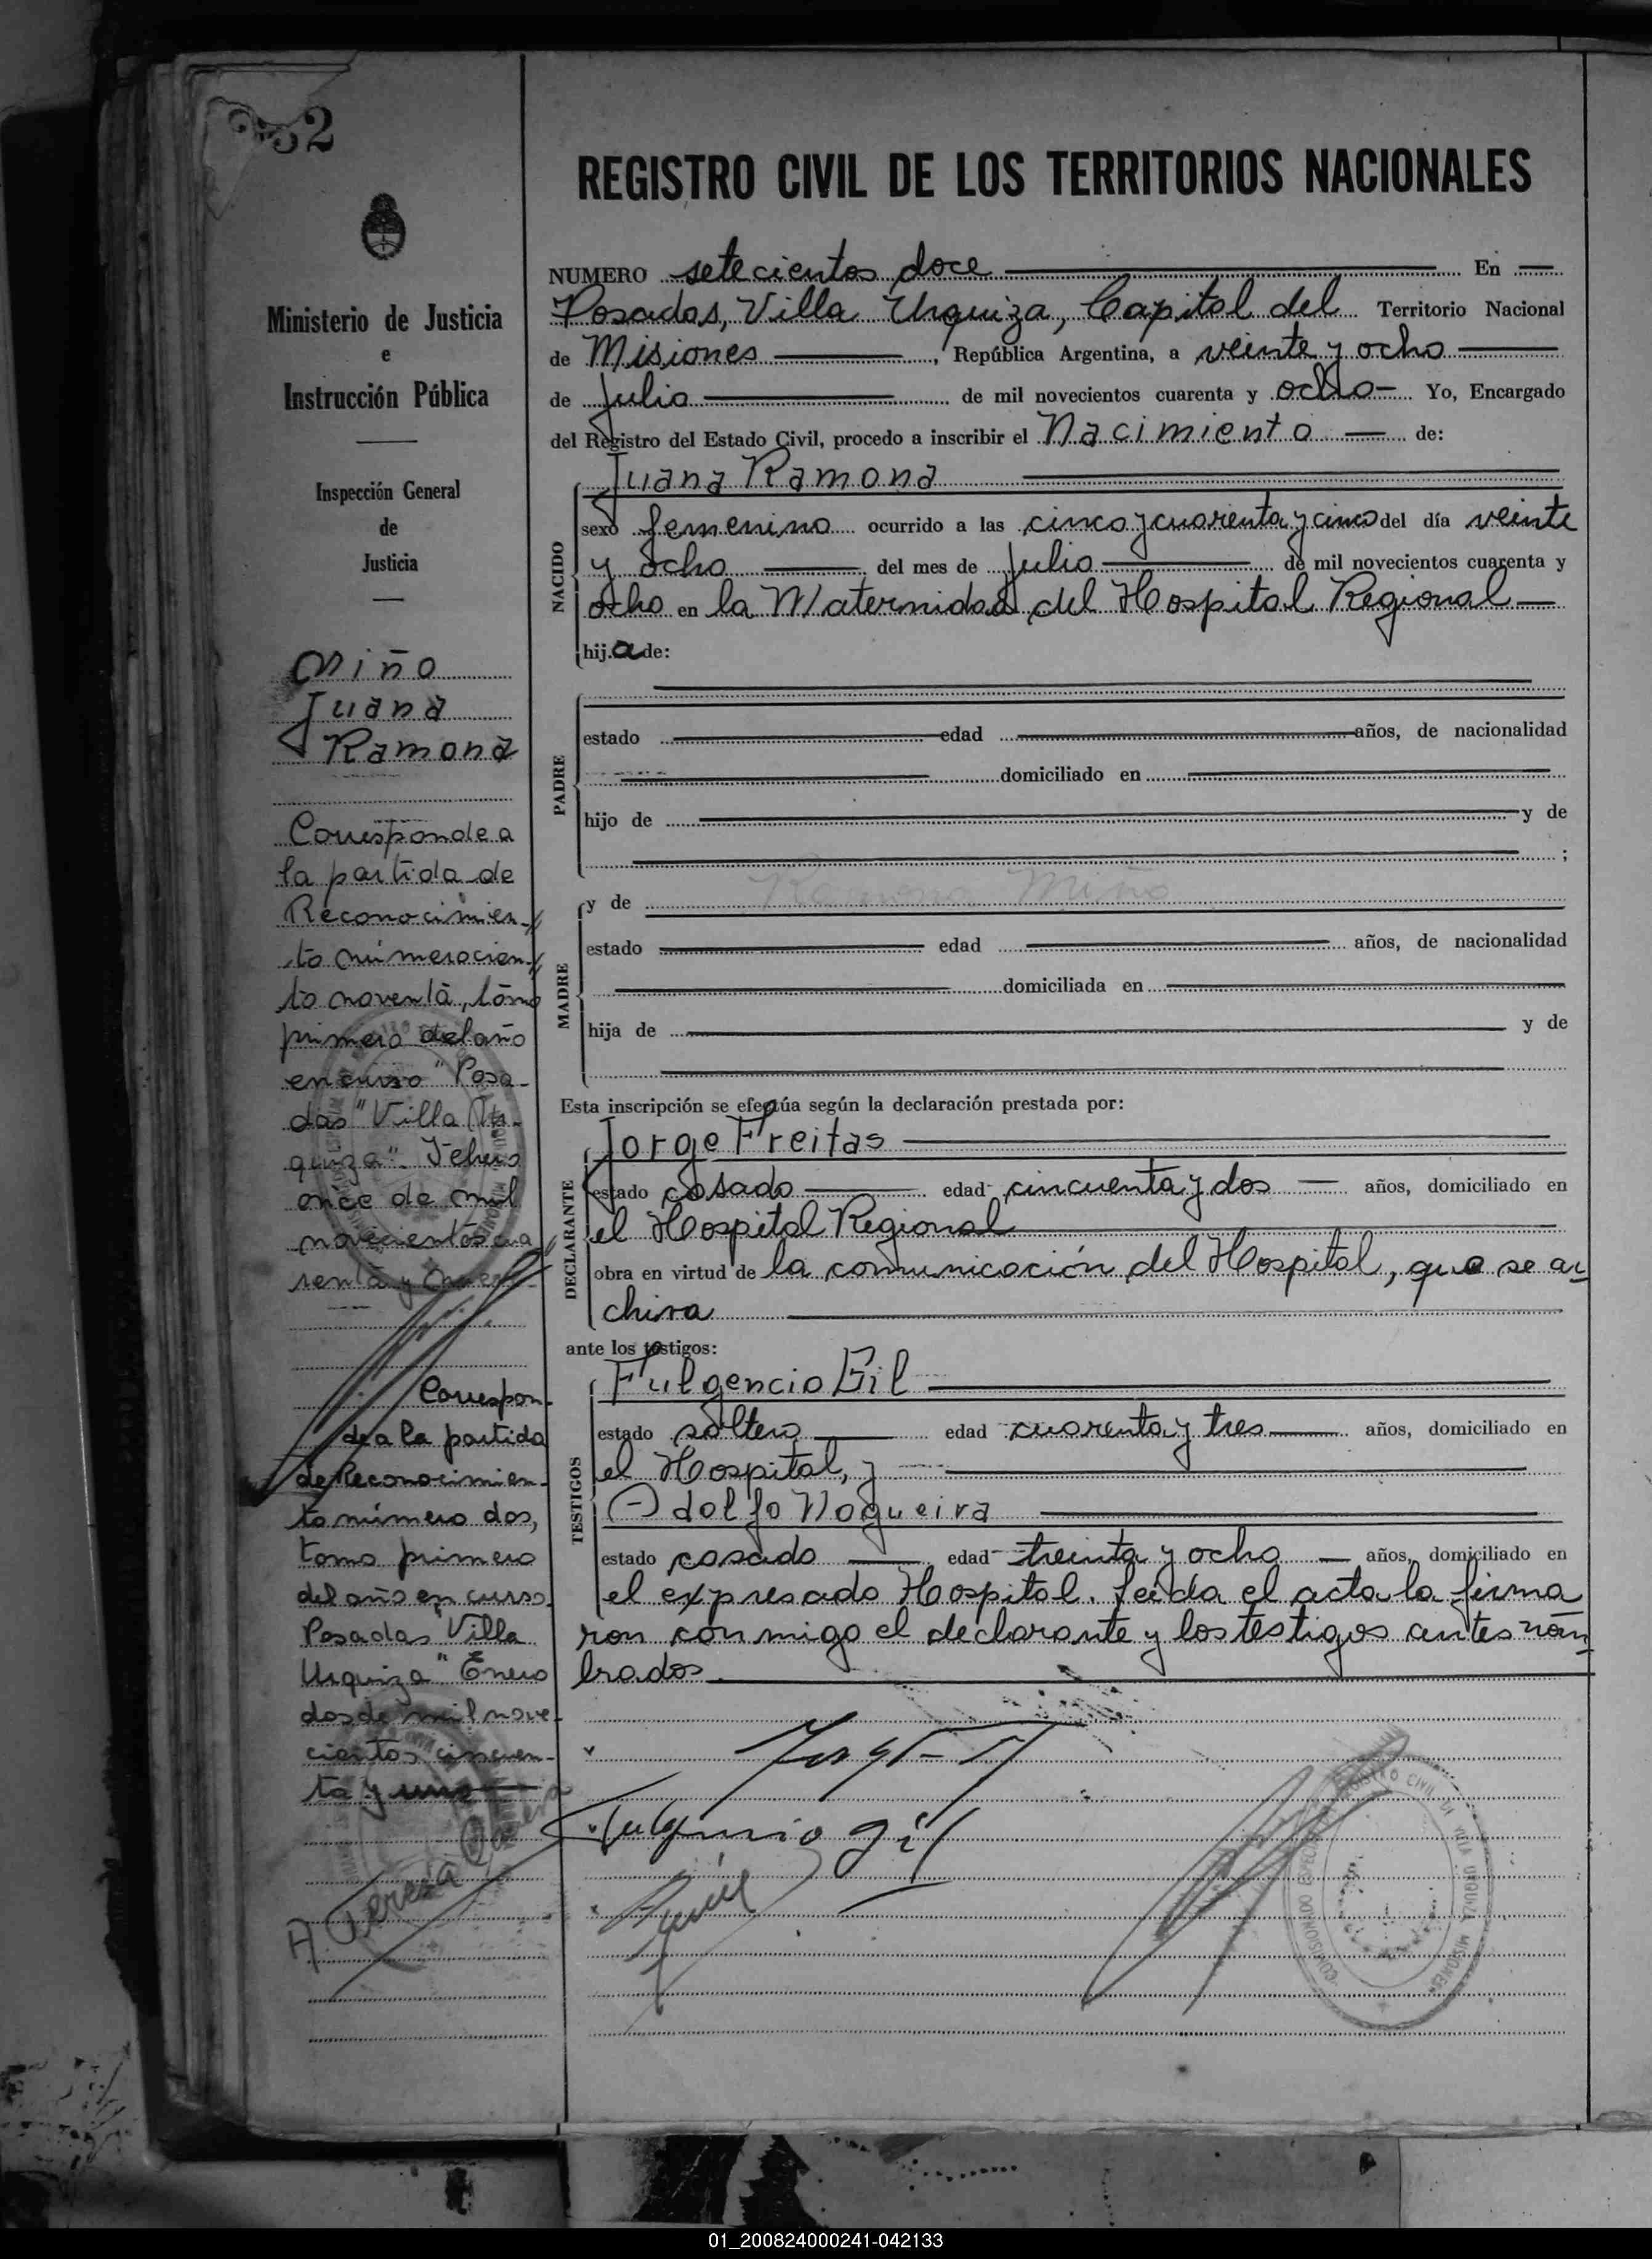 32
REGISTRO CIVIL DE LOS TERRITORIOS NACIONALES
Ministerio de Justicia
e
Instrucción Pública
Inspección General
de
Justicia
Miño
Juana
Ramona
Corresponde a
la partida de
Reconocimien-
to número cien-
to noventa, tomo
primero del año
en curso "Posa-
das "Villa Ur-
quiza". Febrero
once de mil
novecientos cua
renta y nueve
Correspon-
de a la partida
de Reconocimien-
to número dos,
tomo primero
del año en curso.
Posadas "Villa
Urquiza" Enero
dos de mil nove-
cientos cincuen-
ta y uno
NUMERO setecientos doce En
Posadas, Villa Urquiza, Capital del Territorio Nacional
de Misiones, República Argentina, a veinte y ocho
de Julio de mil novecientos cuarenta y ocho- Yo, Encargado
del Registro del Estado Civil, procedo a inscribir el Nacimiento de:
NACIDO
Juana Ramona
sexo femenino ocurrido a las cinco y cuarenta y cinco del día veinte
y ocho del mes de Julio de mil novecientos cuarenta y
ocho en la Maternidad del Hospital Regional
hija de:
PADRE
estado edad años, de nacionalidad
domiciliado en
hijo de y de
;
MADRE
y de Ramona Miño
estado edad años, de nacionalidad
domiciliada en
hija de y de
Esta inscripción se efectúa según la declaración prestada por:
DECLARANTE
Jorge Freitas
estado casado edad cincuenta y dos años, domiciliado en
el Hospital Regional
obra en virtud de la comunicación del Hospital, que se ar
chiva
ante los testigos:
TESTIGOS
Fulgencio Gil
estado soltero edad cuarenta y tres años, domiciliado en
el Hospital, y
Adolfo Nogueira
estado casado edad treinta y ocho años, domiciliado en
el expresado Hospital. Leida el acta la firma
ron conmigo el declarante y los testigos antes nom
brados
Fulgencio Gil
REGISTRO CIVIL DE VILLA URQUIZA MISIONES
01_200824000241-042133